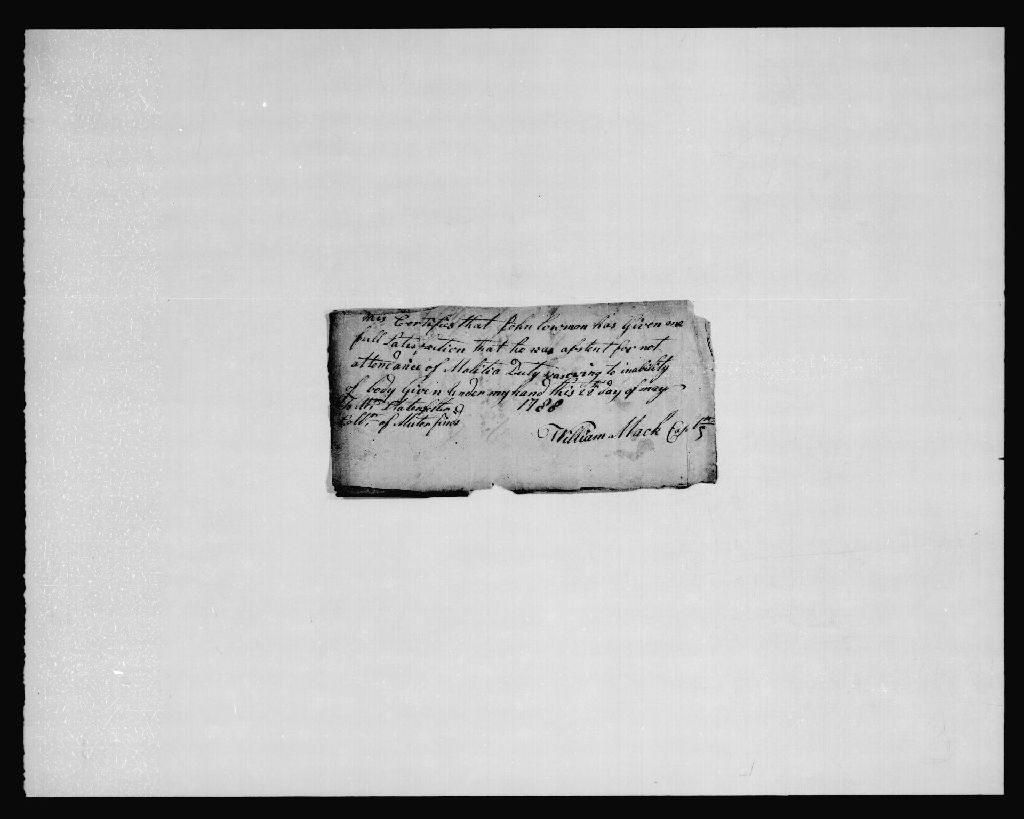 this Certifies that John Cowman has Given me
full Satisfaction that he was abstent for not
attendance of Malitia Duty was owing to inability
of body Given under my hand this day of may
1788
To Mr
Coldr of Muter fines
William Mack Capt